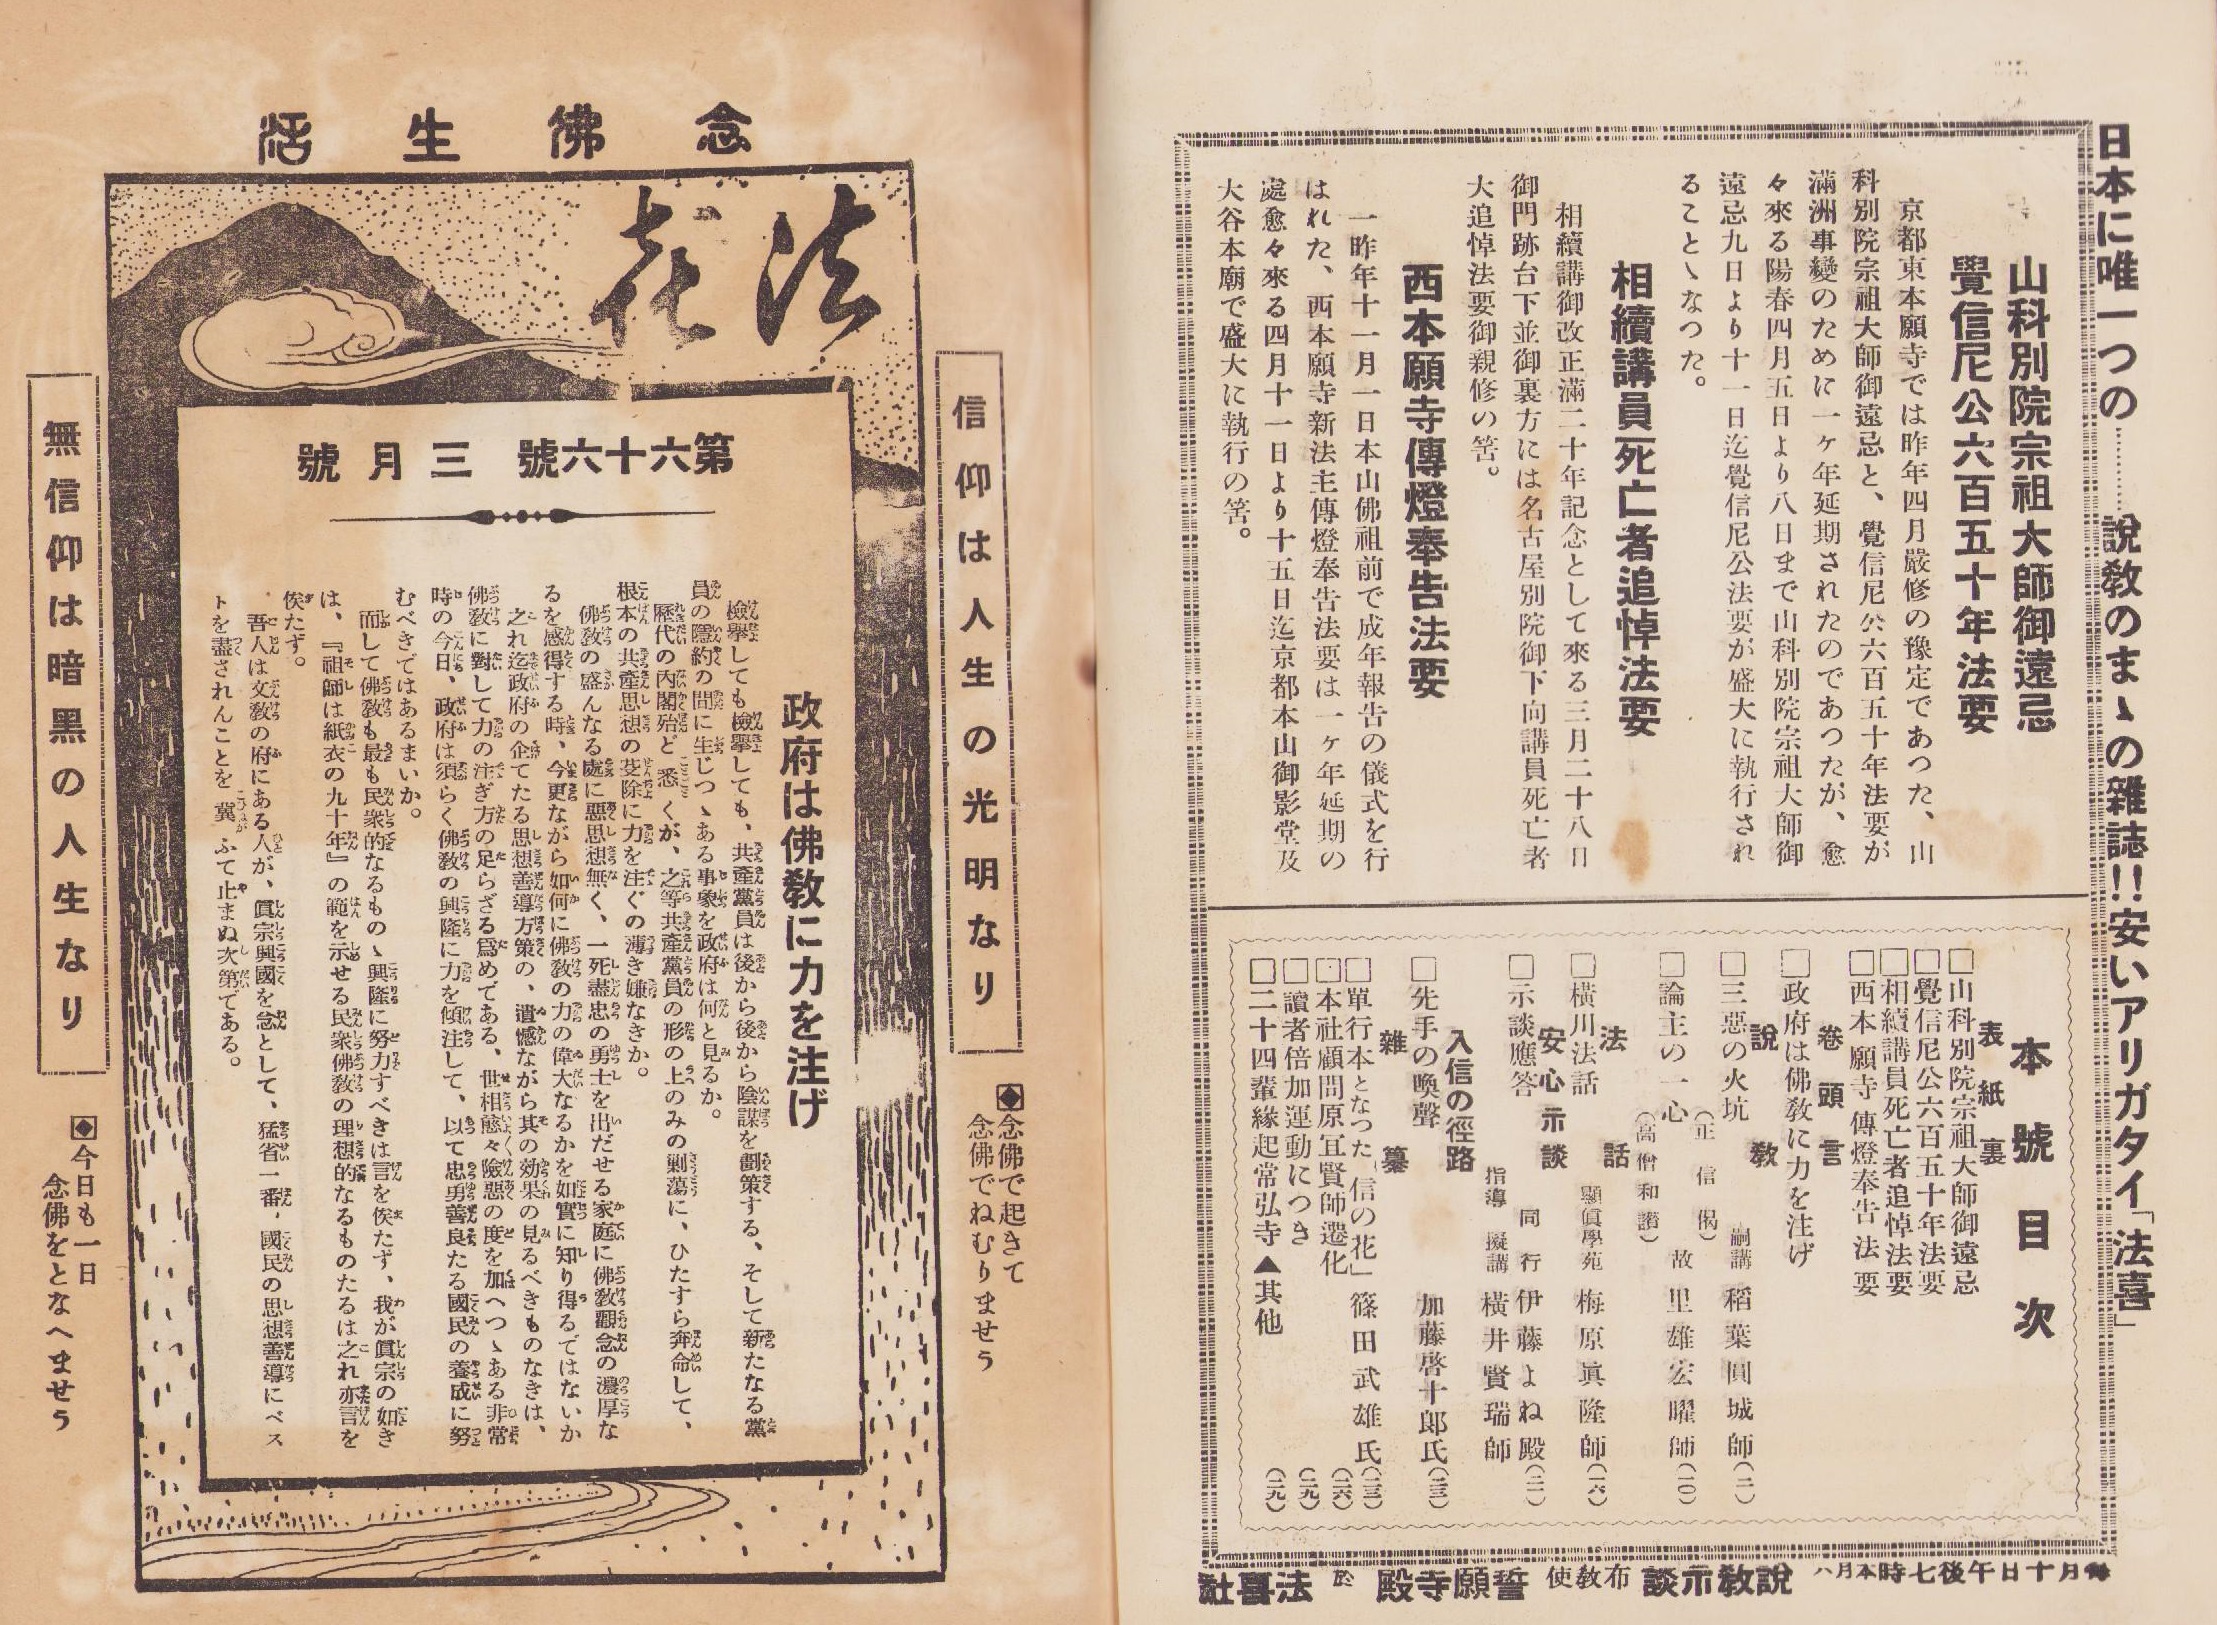 日本に唯一つの…………說敎のまゝの雜誌!!安いアリガタイ「法喜」
山科別院宗祖大師御遠忌
覺信尼公六百五十年法要
京都東本願寺では昨年四月嚴修の豫定であつた、山
科別院宗祖大師御遠忌と、覺信尼公六百五十年法要が
滿洲事變のために一ヶ年延期されたのであつたが、愈
々來る陽春四月五日より八日まで山科別院宗祖大師御
遠忌九日より十一日迄覺信尼公法要が盛大に執行され
ることゝなつた。
相續講員死亡者追悼法要
相續講御改正滿二十年記念として來る三月二十八日
御門跡台下並御裏方には名古屋別院御下向講員死亡者
大追悼法要御親修の筈。
西本願寺傳燈奉告法要
一昨年十一月一日本山佛祖前で成年報告の儀式を行
はれた、西本願寺新法主傳燈奉告法要は一ヶ年延期の
處愈々來る四月十一日より十五日迄京都本山御影堂及
大谷本廟で盛大に執行の筈。
本號目次
表紙裏
□山科別院宗祖大師御遠忌
□覺信尼公六百五十年法要
□相續講員死亡者追悼法要
□西本願寺傳燈奉告法要
卷頭言
□政府は佛敎に力を注げ
說敎
□三惡の火坑(正信偈) 嗣講 稻葉圓城師(一)
□論主の一心(高僧和讃) 故 里雄宏曜師(一〇)
法話
□橫川法話 顯眞學苑 梅原眞隆師(一六)
安心示談
□示談應答 同行 伊藤よね殿(二一)
指導 擬講 橫井賢瑞師
入信の徑路
□先手の喚聲 加藤啓十郞氏(二三)
雜纂
□單行本となつた「信の花」 篠田武雄氏(二三)
□本社顧問原宜賢師遷化(二六)
□讀者倍加運動につき(二九)
□二十四輩緣起常弘寺▲其他(二九)
每月十日午後七時本月八
說敎示談 布敎使 誓願寺殿 於 法喜社
念佛生活
法苑
第六十六號 三月號
信仰は人生の光明なり
◆念佛で起きて
念佛でねむりませう
政府は佛敎に力を注げ
檢擧しても檢擧しても、共產黨員は後から後から陰謀を劃策する、そして新たなる黨
員の隱約の間に生じつゝある事象を政府は何と見るか。
歷代の內閣殆ど悉くが、之等共產黨員の形の上のみの剿蕩に、ひたすら奔命して、
根本の共產思想の芟除に力を注ぐの薄き嫌なきか。
佛敎の盛んなる處に惡思想無く、一死盡忠の勇士を出だせる家庭に佛敎觀念の濃厚な
るを感得する時、今更ながら如何に佛敎の力の偉大なるかを如實に知り得るではないか
之れ迄政府の企てたる思想善導方策の、遺憾ながら其の効果の見るべきものなきは、
佛敎に對して力の注ぎ方の足らざる爲めである、世相愈々險惡の度を加へつゝある非常
時の今日、政府は須らく佛敎の興隆に力を傾注して、以て忠勇善良たる國民の養成に努
むべきではあるまいか。
而して佛敎も最も民衆的なるものゝ興隆に努力すべきは言を俟たず、我が眞宗の如き
は、『祖師は紙衣の九十年』の範を示せる民衆佛敎の理想的なるものたるは之れ亦言を
俟たず。
吾人は文敎の府にある人が、眞宗興國を念として、猛省一番、國民の思想善導にベス
トを盡されんことを冀ふて止まぬ次第である。
無信仰は暗黑の人生なり
◆今日も一日
念佛をとなへませう